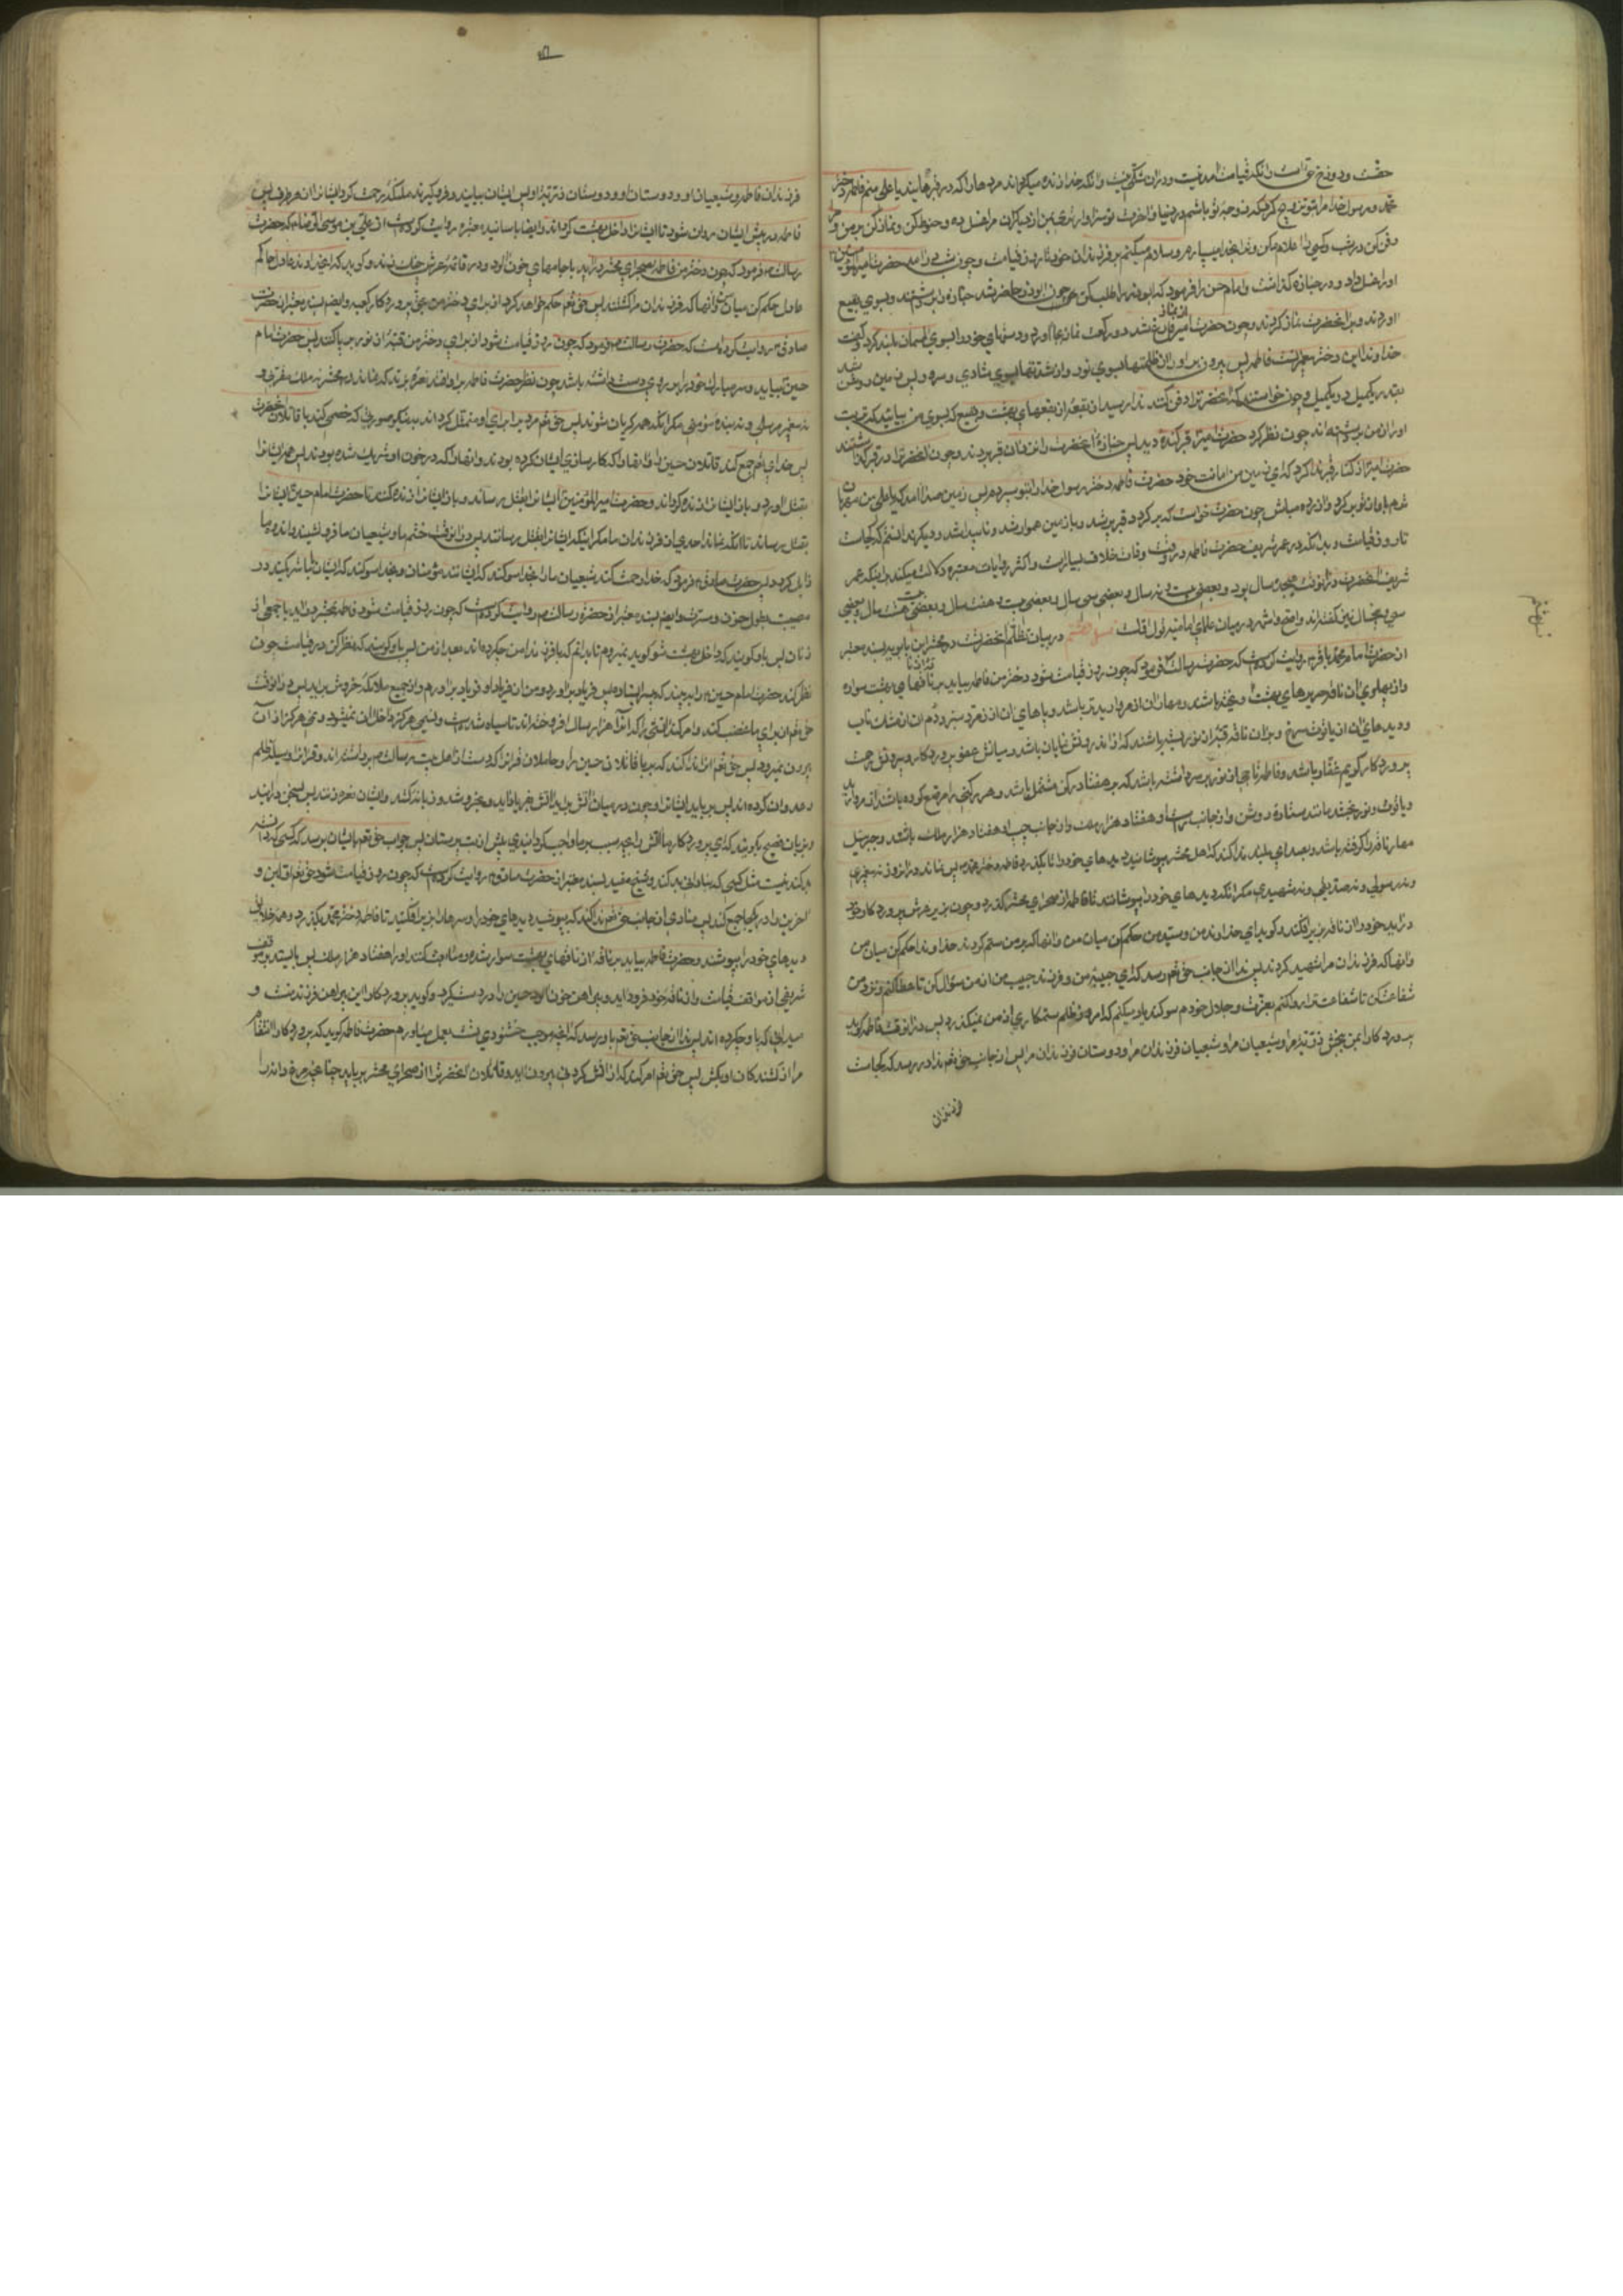 حقست و دوزخ حق است و آنکه قیامت آمدنیست و در آن شکی نیست و آنکه خدا زنده میگرداند مردها را که در قبرهایند یا علی منم فاطمه دختر
محمد رسول خدا مرا بتو تزویج کرد که زوجه تو باشم در دنیا و آخرت تو سزاوارتری بمن از دیگران مرا غسل ده و حنوط کن و نماز کن بر من و مرا
دفن کن در شب و کسی را اعلام مکن و ترا بخدا میسپارم و سلام میکنم بر فرزندان خود تا روز قیامت و چون شب درآمد حضرت امیرالمؤمنین
او را غسل داد و در جنازه گذاشت و امام حسن را فرمود که ابوذر را طلب کن چون ابوذر حاضر شد جنازه را برداشتند و بسوی بقیع
آوردند و بر آنحضرت نماز کردند و چون حضرت امیر از نماز فارغ شد دو رکعت نماز بجا آورد و دستهای خود را بسوی آسمان بلند کرد و گفت
خداوندا این دختر پیغمبر تست فاطمه پس بیرون بر او را از ظلمتها بسوی نور و از شدتها بسوی شادی و سرور پس زمین روشن شد
بقدر یکمیل در یکمیل و چون خواستند که آنحضرت را دفن کنند ندا رسید از بقعه از بقعهای بهشت و بقیع که بسوی من بیائید که تربت
او را از من برداشته‌اند چون نظر کرد حضرت امیر قبر کنده دید پس جنازه آنحضرت را نزدیک آن قبر بردند و چون آنحضرت را در قبر گذاشتند
حضرت امیر از کنار قبر ندا کرد که ای زمین من امانت خود حضرت فاطمه دختر رسول خدا را بتو سپردم پس از زمین صدا آمد که یا علی من مهربان
ترم باو از تو برگرد و آزرده مباش چون حضرت خواست که برگردد قبر پر شد و با زمین هموار شد و ناپیدا شد و دیگر ندانستم که کجاست
تا روز قیامت و بدانکه در عمر شریف حضرت فاطمه در وقت وفات خلاف بسیار است و اکثر روایات معتبره دلالت میکند بر اینکه عمر
شریف آنحضرت در آنوقت هیجده سال بود و بعضی بیست و نه سال و بعضی سی سال و بعضی بیست و هفت سال و بعضی بیست و هشت سال و بعضی
سی و پنج سال نیز گفته‌اند و اصح و اشهر در میان علمای امامیه قول اولست فصل هشتم در بیان تظلم آنحضرت در محشر ابن بابویه بسند معتبر
از حضرت امام محمد باقر روایت کرده است که حضرت رسالت فرمود که چون روز قیامت شود دختر من فاطمه بیاید بر ناقه از ناقهای بهشت سوار
و از پهلوی آن ناقه حریرهای بهشت آویخته باشد و مهار آن از مروارید تر باشد و پاهای آن از زمرد سبز و دم آن از مشک ناب
و دیدهای آن از یاقوت سرخ و بر آن ناقه قبه از نور بسته باشند که از اندرونش نمایان باشد و میانش عفو پروردگار و بیرونش رحمت
پروردگار کریم غفار باشد و فاطمه تاجی از نور بر سر داشته باشد که بر هفتاد رکن مشتمل باشد و هر رکنی را مرصع کرده باشند از مروارید
و یاقوت و نور بخشد مانند ستاره روشن و از جانب راست او هفتاد هزار ملک و از جانب چپ او هفتاد هزار ملک باشند و جبرئیل
مهار ناقه را گرفته باشد و بصدای بلند ندا کند که اهل محشر بپوشانید دیدهای خود را تا بگذرد فاطمه دختر محمد پس نماند در آن روز نه پیغمبری
و نه رسولی و نه صدیقی و نه شهیدی مگر آنکه دیدهای خود را بپوشانند تا فاطمه از صحرای محشر بگذرد و چون بزیر عرش پروردگار خود
درآید خود را از ناقه بزیر افکند و گوید ای خداوند من و سید من حکم کن میان من و آنها که بر من ستم کردند خداوندا حکم کن میان من
و آنها که فرزندان مرا شهید کردند پس ندا از جانب حق تعالی رسد که ای حبیبه من و فرزند حبیب من از من سؤال کن تا عطا کنم و نزد من
شفاعت کن تا شفاعت ترا روا کنم بعزت و جلال خودم سوگند یاد میکنم که امروز ظلم ستمکاری از من نمیگذرد پس در آنوقت فاطمه گوید
پروردگارا بمن ببخش ذریه مرا و شیعیان مرا و شیعیان فرزندان مرا و دوستان فرزندان مرا پس از جانب حق تعالی ندا در رسد که کجایند
فرزندان
فرزندان فاطمه و شیعیان او و دوستان او و دوستان ذریه او پس ایشان بیایند و فرو گیرند ملائکه رحمت گرد ایشان را از هر طرف پس
فاطمه در پیش ایشان روان شود تا ایشان را داخل بهشت گرداند و ایضا باسانید معتبره روایت کرده است از علی بن موسی الرضا که حضرت
رسالت فرمود که چون دختر من فاطمه بصحرای محشر درآید با جامهای خون آلود و در قائمه عرش چنگ زند و گوید که ای خداوند عادل حاکم
عادل حکم کن میان من و آنها که فرزندان مرا کشتند پس حق تعالی حکم خواهد کرد از برای دختر من بحق پروردگار کعبه و ایضا بسند معتبر از حضرت
صادق روایت کرده است که حضرت رسالت فرمود که چون روز قیامت شود از برای دختر من قبه از نور برپا کنند پس حضرت امام
حسین بیاید و سر مبارک خود را بر روی دست داشته باشد چون نظر حضرت فاطمه بر او افتد نعره بزند که نماند در محشر نه ملک مقربی و
نه پیغمبر مرسلی و نه بنده مؤمنی مگر آنکه همه گریان شوند پس حق تعالی مردی را برای او متمثل گرداند به نیکوترین صورتی که خصمی کند با قاتلان آنحضرت
پس خدا برای او جمع کند قاتلان حسین را و آنها را که کارسازی ایشان کرده بودند و آنها را که در خون او شریک شده بودند پس همه ایشان را
بقتل آورد و باز ایشان را زنده گرداند و حضرت امیرالمؤمنین ایشان را بقتل رساند و باز ایشان را زنده کنند تا حضرت امام حسن ایشان را
بقتل رساند تا آنکه نماند احدی از فرزندان ما مگر اینکه ایشان را بقتل رسانند پس در آنوقت خشم ما و شیعیان ما فرو نشیند و اندوه ما
زایل گردد پس حضرت صادق فرمود که خدا رحمت کند شیعیان ما را بخدا سوگند که ایشانند مؤمنان و بخدا سوگند که ایشان با ما شریکند در
مصیبت بطول حزن و حسرت و ایضا بسند معتبر از حضرت رسالت روایت کرده است که چون روز قیامت شود فاطمه بمحشر درآید با جمعی از
زنان پس باو گویند که داخل بهشت شو گوید نمیروم تا بدانم که با فرزندان من چکرده‌اند بعد از من پس باو گویند که نظر کن در قیامت چون
نظر کند حضرت امام حسین را بیند که بی سر ایستاده پس فریاد برآورد و من از فریاد او فریاد برآورم و از جمیع ملائکه خروش برآید پس در آنوقت
حق تعالی از برای ما غضب کند و امر کند آتشی را که آنرا هزار سال افروخته‌اند تا سیاه شده است و نسیمی هرگز داخل آن نمیشود و غم هرگز از آن
بیرون نمیرود پس حق تعالی آنرا ندا کند که بربا قاتلان حسین را و حاملان قرآنرا که دست از اهل بیت رسالت برداشته‌اند و قرآنرا وسیله ظلم
و عدوان کرده‌اند پس برباید ایشانرا و چون در میان آتش درآیند آتش بفریاد آید و بخروشد و زبانه کشد و ایشان نعره زنند پس بسخن درآیند
و بزبان فصیح بگویند که ای پروردگار ما آتش را بچه سبب بر ما واجب گردانیدی پیش از بت پرستان پس جواب حق تعالی بایشان برسد که کسی که دانسته
بد کند نیست مثل کسی که بنادانی بد کند و شیخ مفید بسند معتبر از حضرت صادق روایت کرده است که چون روز قیامت شود حق تعالی اولین و
آخرین را در یکجا جمع کند پس منادی از جانب حق تعالی ندا کند که بپوشید دیدهای خود را و سرها را بزیر افکنید تا فاطمه دختر محمد بگذرد و همه خلایق
دیدهای خود را بپوشند و حضرت فاطمه بیاید بر ناقه از ناقهای بهشت سوار شده و مشایعت کنند او را هفتاد هزار ملک پس بایستد بر موقف
شریفی از مواقف قیامت و از ناقه خود فرود آید و پیراهن خون آلود حسین را در دست گیرد و گوید پروردگارا این پیراهن فرزند منست و
میدانی که با او چکرده‌اند پس ندا از جانب حق تعالی باو رسد که آنچه موجب خشنودی تست بعمل میآورم حضرت فاطمه گوید که پروردگارا انتقام
مرا از کشندگان او بکش پس حق تعالی امر کند که از آتش گردنی بیرون آید و قاتلان آنحضرت را از صحرای محشر برباید چنانچه مرغ دانه را